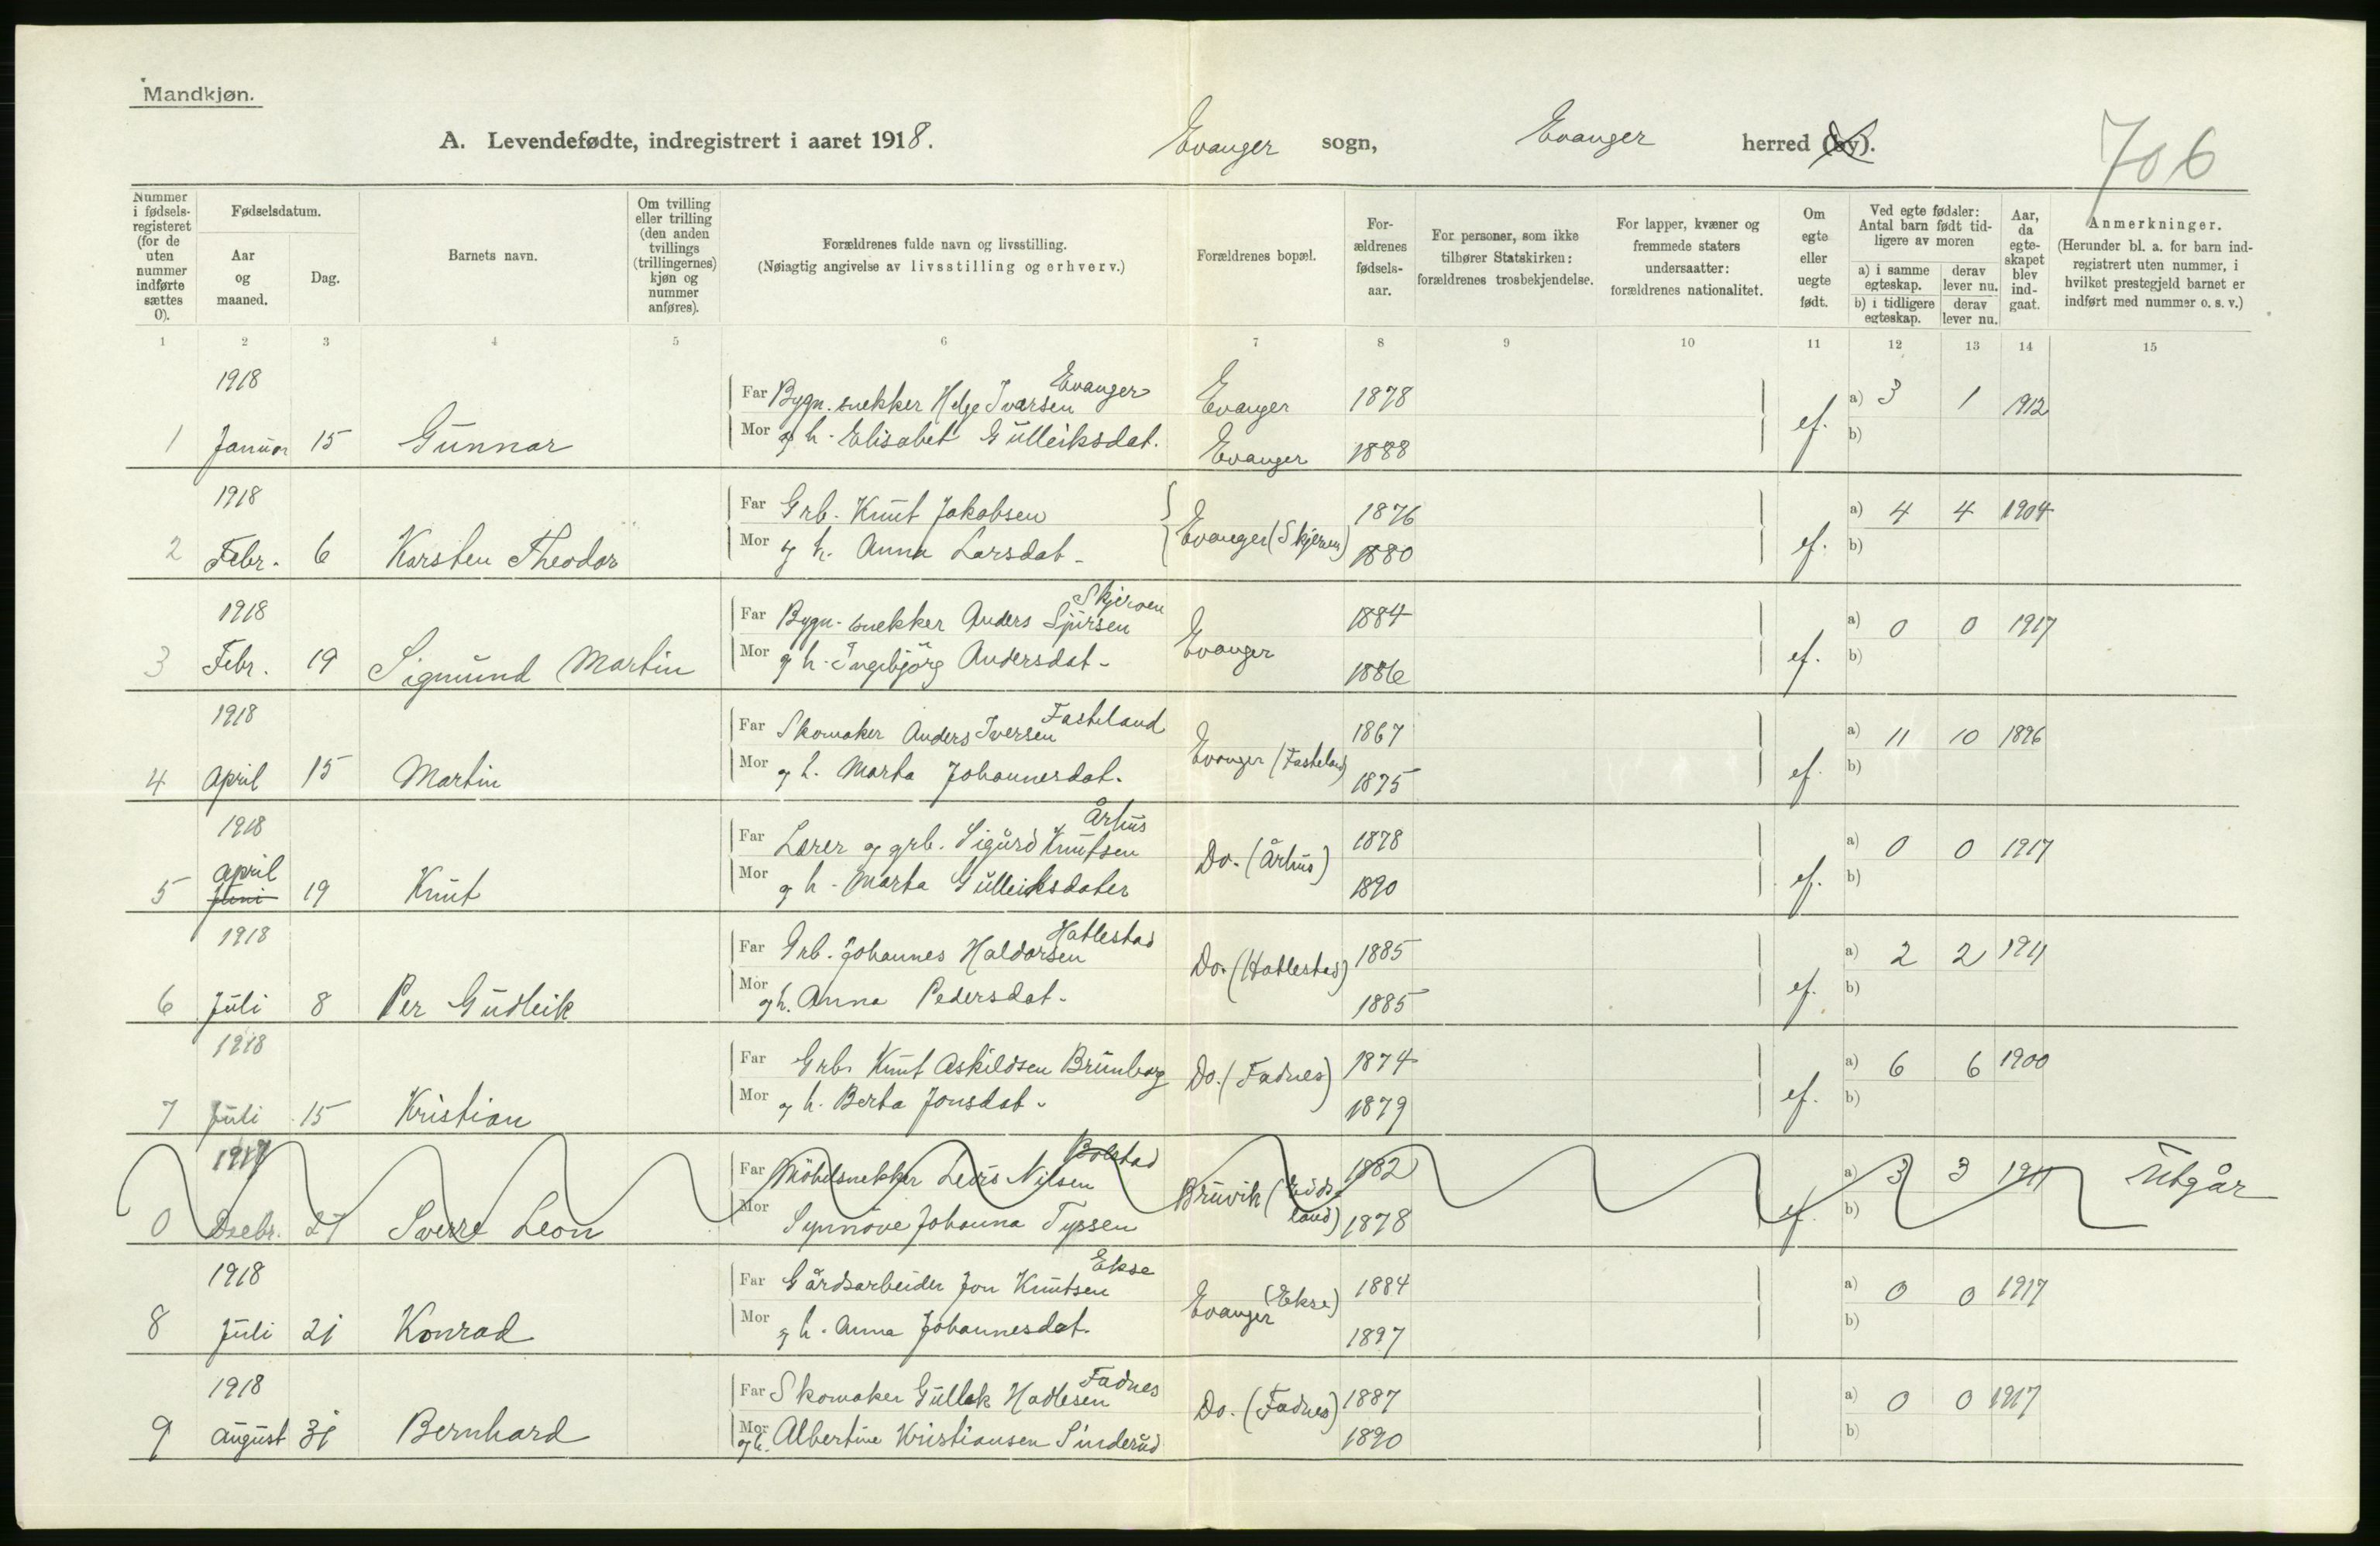 Mandkjøn.
A. Levendefødte, indregistrert i aaret 1918. Evanger sogn, Evanger herred (by).
706
Nummer i fødselsregisteret (for de uten nummer indførte sættes 0).
Fødselsdatum.
Aar og maaned.
Dag.
Barnets navn.
Om tvilling eller trilling (den anden tvillings (trillingernes) kjøn og nummer anføres).
Forældrenes fulde navn og livsstilling.
(Nøiagtig angivelse av livsstilling og erhverv.)
Forældrenes bopæl.
Forældrenes fødselsaar.
For personer, som ikke tilhører Statskirken: forældrenes trosbekjendelse.
For lapper, kvæner og fremmede staters undersaatter: forældrenes nationalitet.
Om egte eller uegte født.
Ved egte fødsler: Antal barn født tidligere av moren
a) i samme egteskap.
derav lever nu.
b) i tidligere egteskap.
derav lever nu.
Aar, da egteskapet blev indgaat.
Anmerkninger.
(Herunder bl. a. for barn indregistrert uten nummer, i hvilket prestegjeld barnet er indført med nummer o. s. v.)
1 2 3 4 5 6 7 8 9 10 11 12 13 14 15
1918 Evanger
Far Bygn. snekker Helge Ivarsen Evanger 1878 a) 3 1 1912
1 Januar 15 Gunnar Mor og h. Elisabet Gulleiksdat. Evanger 1888 ef. b)
1918
Far Grb. Knut Jakobsen 1876 a) 4 4 1904
2 Febr. 6 Karsten Theodor Mor og h. Anna Larsdat. Evanger (Skjerven) 1880 ef. b)
1918 Skjerven
Far Bygn. snekker Anders Sjursen 1884 a) 0 0 1917
3 Febr. 19 Sigmund Martin Mor og h. Ingebjörg Andersdat. Evanger 1886 ef. b)
1918 Fasteland
Far Skomaker Anders Iversen 1867 a) 11 10 1896
4 April 15 Martin Mor og h. Marta Johannesdat. Evanger (Fasteland) 1875 ef. b)
1918 Århus
Far Lærer og grb. Sigurd Knutsen 1878 a) 0 0 1917
April
5 Juni 19 Knut Mor og h. Marta Gulleiksdater Do. (Århus) 1890 ef. b)
1918 Hatlestad
Far Grb. Johannes Haldorsen 1885 a) 2 2 1911
6 Juli 8 Per Gudleik Mor og h. Anna Pedersdat. Do. (Hatlestad) 1885 ef. b)
1918
Far Grb. Knut Askildsen Brunborg 1874 a) 6 6 1900
7 Juli 15 Kristian Mor og h. Berta Jonsdat. Do. (Fadnes) 1879 ef. b)
1917 Bolstad
Far Möbelsnekker Leuis Nilsen 1882 a) 3 3 1911 Utgår
0 Dsebr. 27 Sverre Leon Mor Synnöve Johanna Tyssen Bruvik (Eidsland) 1878 ef. b)
1918 Ekse
Far Gårdsarbeider Jon Knutsen 1884 a) 0 0 1917
8 Juli 21 Konrad Mor og h. Anna Johannesdat. Evanger (Ekse) 1897 b)
1918 Fadnes
Far Skomaker Gullak Hadlesen 1887 a) 0 0 1917
9 August 31 Bernhard Mor og h. Albertine Kristiansen Sinderud Do. (Fadnes) 1890 b)